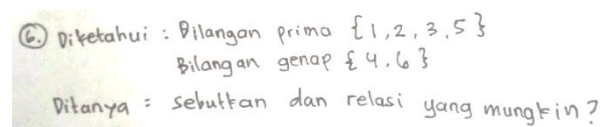 6. Diketahui : Bilangan prima {1, 2, 3, 5}
Bilangan genap {4, 6}
Ditanya : sebutkan dan relasi yang mungkin ?